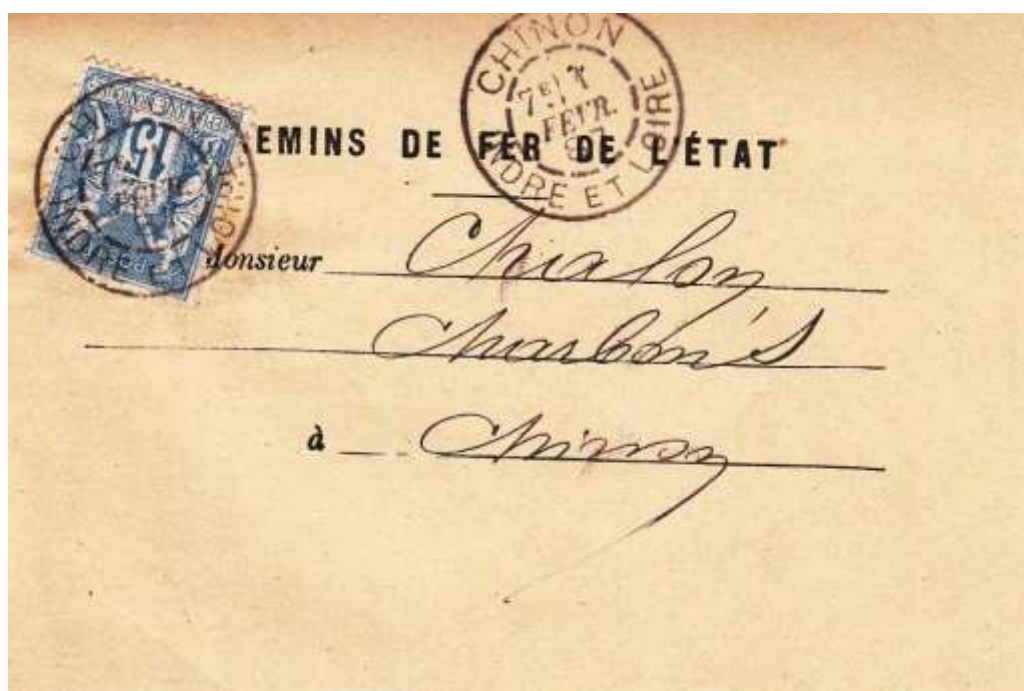 CHINON
7E 1
FEVR.
INDRE ET LOIRE
15
INDRE ET LOIRE
EMINS DE FER DE L'ÉTAT
Monsieur Chialon
Charbon's
à Chinon